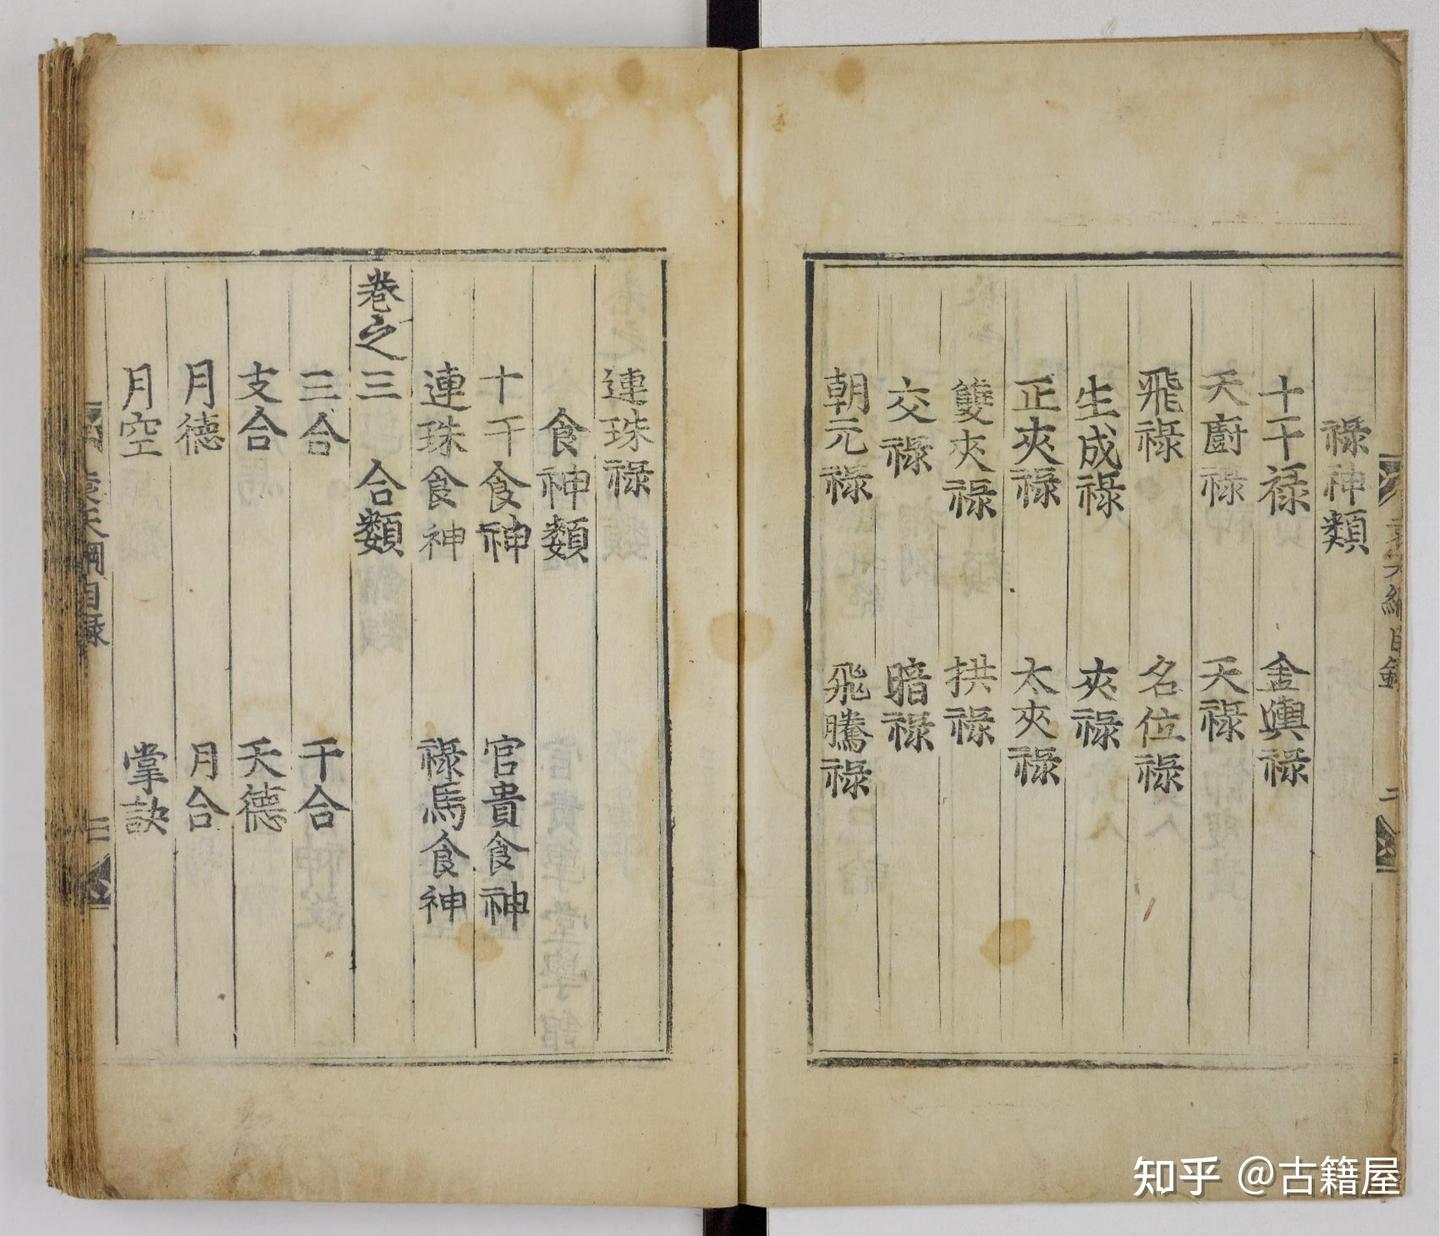 祿神類
十干祿 金輿祿
天廚祿 天祿
飛祿 名位祿
生成祿 夾祿
正夾祿 太夾祿
雙夾祿 拱祿
交祿 暗祿
朝元祿 飛騰祿
連珠祿
食神類
十干食神 官貴食神
連珠食神 祿馬食神
卷之三 合類
三合 干合
支合 天德
月德 月合
月空 掌訣
袁天綱目錄 三
知乎 @古籍屋